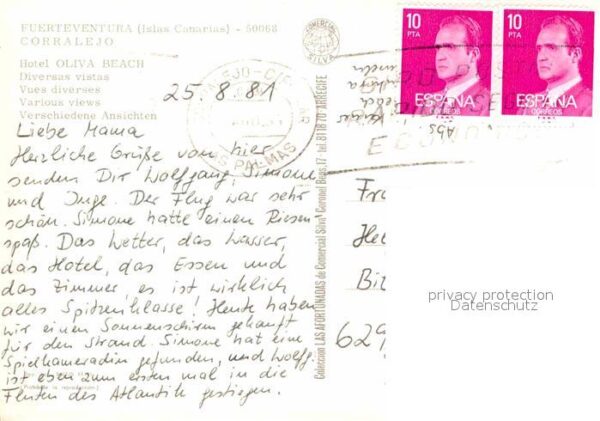 FUERTEVENTURA (Islas Canarias) - 50068
CORRALEJO
Hotel OLIVA BEACH
Diversas vistas
Vues diverses
Various views
Verschiedene Ansichten
25.8.81
Liebe Mama
Herzliche Grüße von hier
senden Dir Wolfgang, Simone
und Inge. Der Flug war sehr
schön. Simone hatte einen Riesen
spaß. Das Wetter, das Wasser,
das Hotel, das Essen und
das Zimmer, es ist wirklich
alles Spitzenklasse! Heute haben
wir einen Sonnenschirm gekauft
für den Strand Simone hat eine
Spielkameradin gefunden, und Wolfg.
ist eben zum ersten mal in die
Fluten des Atlantik gestiegen.
COMERCIAL SILVA
LAS PALMAS
Coleccion LAS AFORTUNADAS de Comercial Silva
10 PTA
ESPAÑA
CORREOS
10 PTA
ESPAÑA
CORREOS
Abs
629
privacy protection
Datenschutz